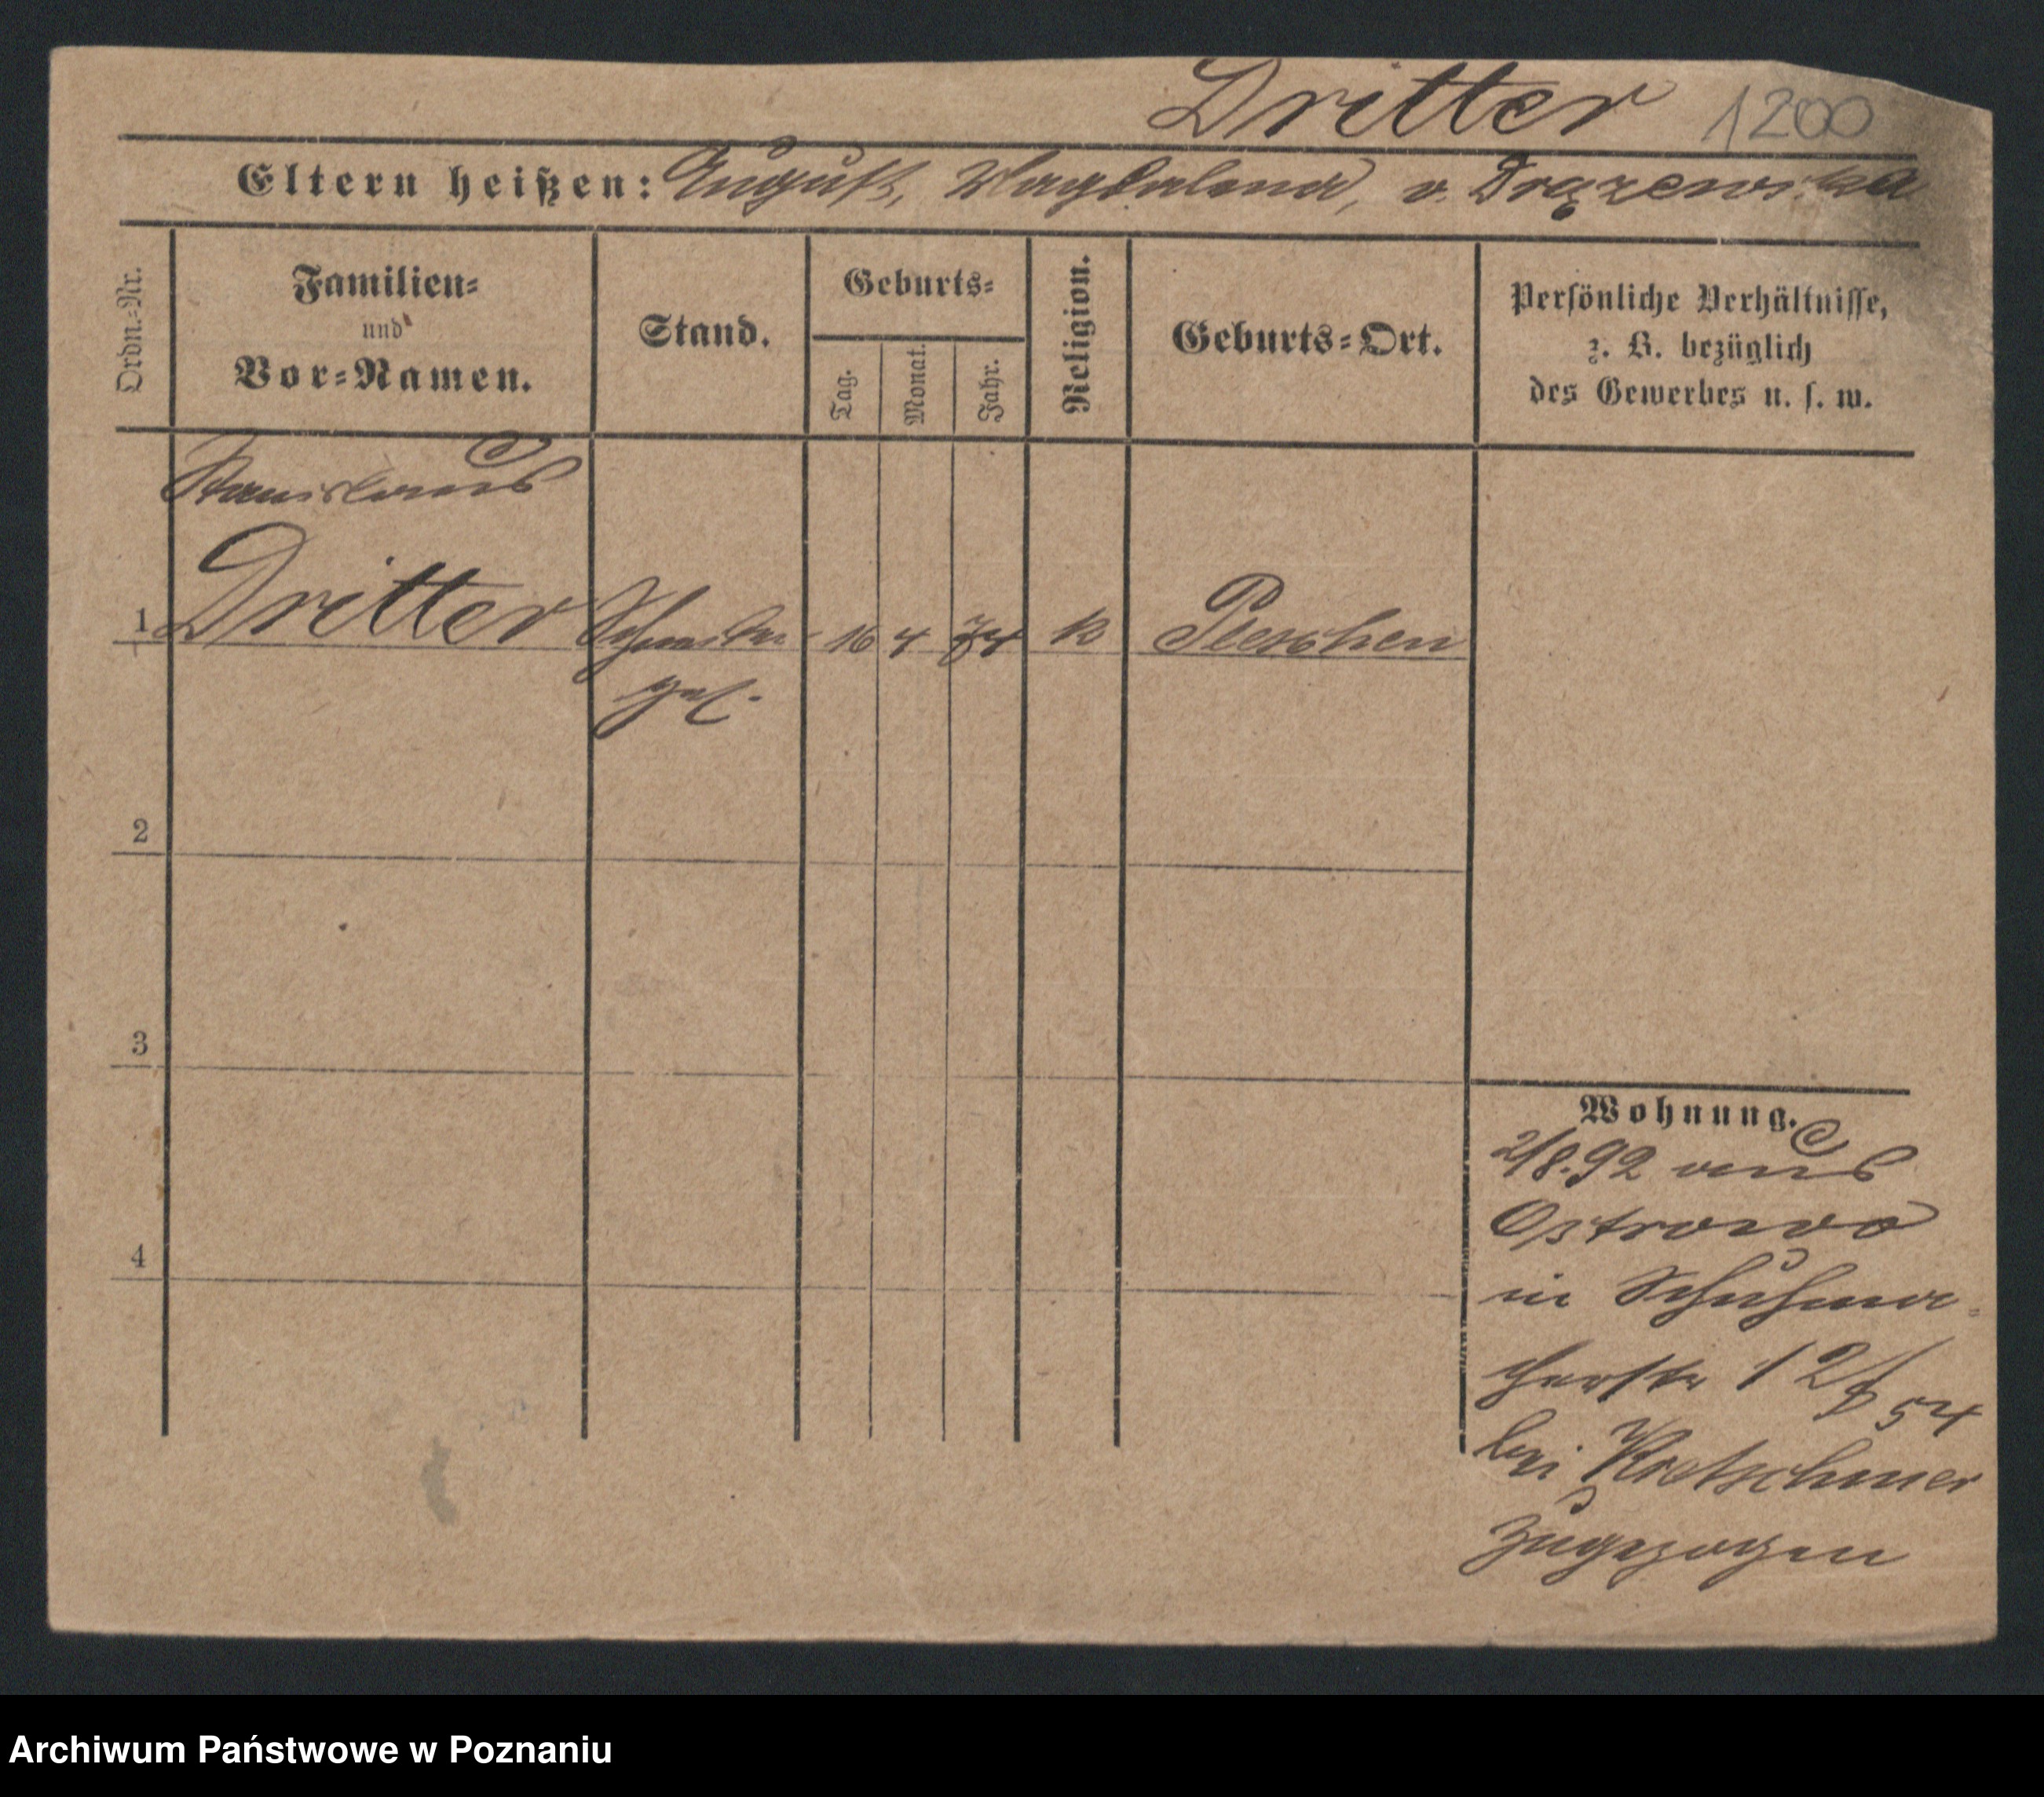 Dritter 1200
Eltern heißen: August, Magdalena, v. Drązewska
Ordn.-Nr.
Familien-
und
Vor-Namen.
Stand.
Geburts-
Tag.
Monat.
Jahr.
Religion.
Geburts-Ort.
Persönliche Verhältnisse,
z. B. bezüglich
des Gewerbes u. s. w.
Stanislaus
1 Dritter 16 4 74 k Pleschen
gel.
2
3
4
Wohnung.
2/8.92 aus
Ostrowo
in Schuhma-
cherstr 12/ 54
bei Kretschmer
zugezogen
Archiwum Państwowe w Poznaniu